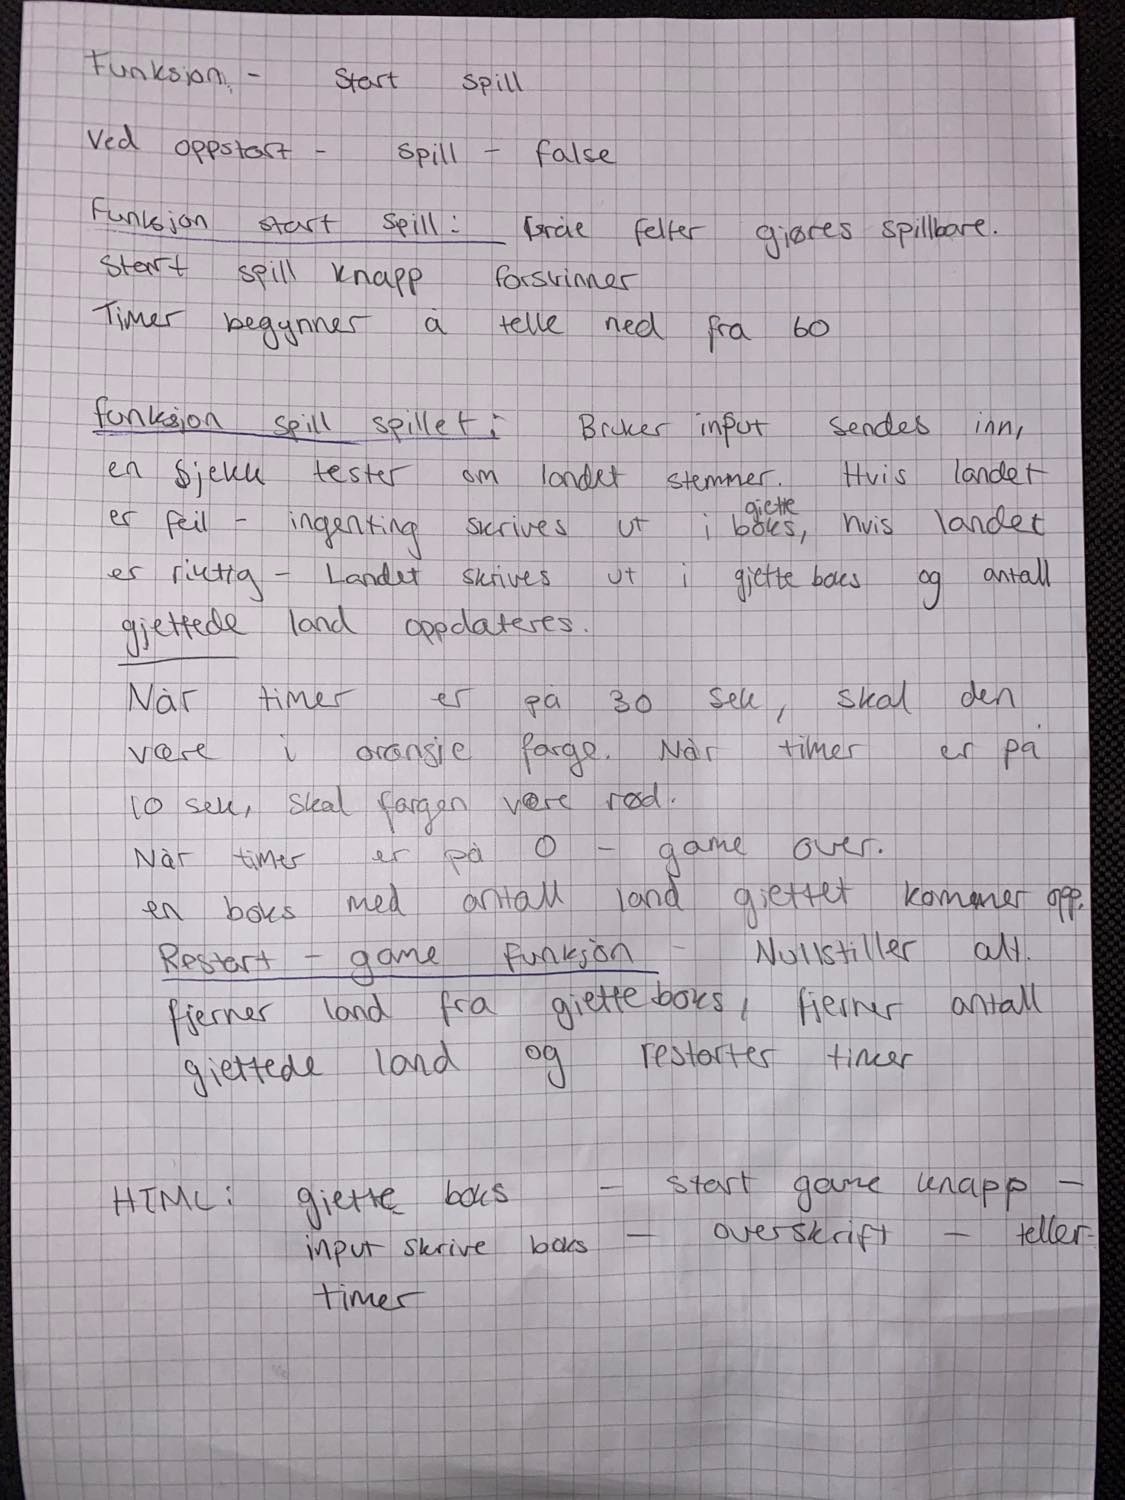 Funksjon - Start spill
Ved oppstart - spill - false
Funksjon start spill: felter gjøres spillbare.
Start spill knapp forsvinner
Timer begynner å telle ned fra 60
funksjon spill spillet: Bruker input sendes inn,
en sjekk tester om landet stemmer. Hvis landet
er feil - ingenting skrives ut i gjette boks, hvis landet
er riktig - Landet skrives ut i gjette boks og antall
gjettede land oppdateres.
Når timer er på 30 sek, skal den
være i oransje farge. Når timer er på
10 sek, skal fargen være rød.
Når timer er på 0 - game over.
en boks med antall land gjettet kommer opp.
Restart - game funksjon - Nullstiller alt.
fjerner land fra gjette boks, fjerner antall
gjettede land og restarter timer
HTML: gjette boks - start game knapp -
input skrive boks - overskrift - teller-
timer